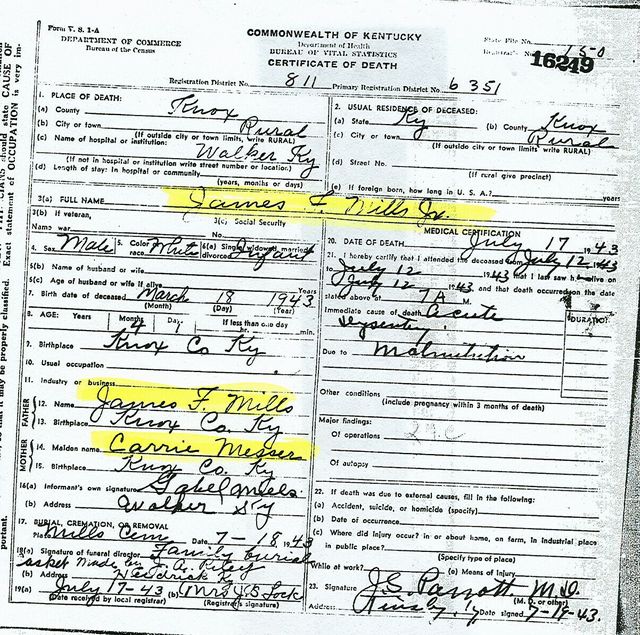 Form V. S. 1-A
DEPARTMENT OF COMMERCE
Bureau of the Census
COMMONWEALTH OF KENTUCKY
Department of Health
BUREAU OF VITAL STATISTICS
CERTIFICATE OF DEATH
State File No.
Registrar's No. 150
16249
Registration District No. 811 Primary Registration District No. 6351
1. PLACE OF DEATH:
(a) County Knox
(b) City or town Rural
(If outside city or town limits, write RURAL)
(c) Name of hospital or institution: Walker Ky
(If not in hospital or institution write street number or location.)
(d) Length of stay: In hospital or community
(years, months or days)
2. USUAL RESIDENCE OF DECEASED:
(a) State Ky (b) County Knox
(c) City or town Rural
(If outside city or town limits write RURAL)
(d) Street No.
(If rural give precinct)
(e) If foreign born, how long in U. S. A.? years
3(a) FULL NAME James F. Mills Jr.
3(b) If veteran,
Name war
3(c) Social Security
No.
4. Sex Male 5. Color race White 6(a) Single, widowed, married, divorced Infant
5(b) Name of husband or wife
5(c) Age of husband or wife if alive Years
7. Birth date of deceased March 18 1943
(Month) (Day) (Year)
8. AGE: Years Months Days If less than one day
4 hr. min.
9. Birthplace Knox Co Ky
10. Usual occupation
11. Industry or business
FATHER
12. Name James F. Mills
13. Birthplace Knox Co. Ky
MOTHER
14. Maiden name Carrie Messer
15. Birthplace Knox Co. Ky
16(a) Informant's own signature
(b) Address Walker Ky
17. BURIAL, CREMATION, OR REMOVAL
Place Mills Cem Date 7-18 1943
18(a) Signature of funeral director Family burial
casket made by J. A. Riley
(b) Address Hendrick Ky
19(a) July 17-43 (b) Mrs J.S. Lock
(Date received by local registrar) (Registrar's signature)
MEDICAL CERTIFICATION
20. DATE OF DEATH July 17 1943
21. I hereby certify that I attended the deceased from July 12 1943
to July 12 1943 that I last saw h alive on
July 12 1943 and that death occurred on the date
stated above at 7 A M.
Immediate cause of death Acute
dysentery
DURATION
Due to Malnutrition
Other conditions
(Include pregnancy within 3 months of death)
Major findings:
Of operations
Of autopsy
22. If death was due to external causes, fill in the following:
(a) Accident, suicide, or homicide (specify)
(b) Date of occurrence
(c) Where did injury occur? in or about home, on farm, in industrial place
in public place?
(Specify type of place)
While at work? (e) Means of injury
23. Signature J.G. Parrott M.D.
(M. D. or other)
Address Date signed 7-19-43.
CIANS should state CAUSE OF
Exact statement of OCCUPATION is very im-
so that it may be properly classified.
portant.